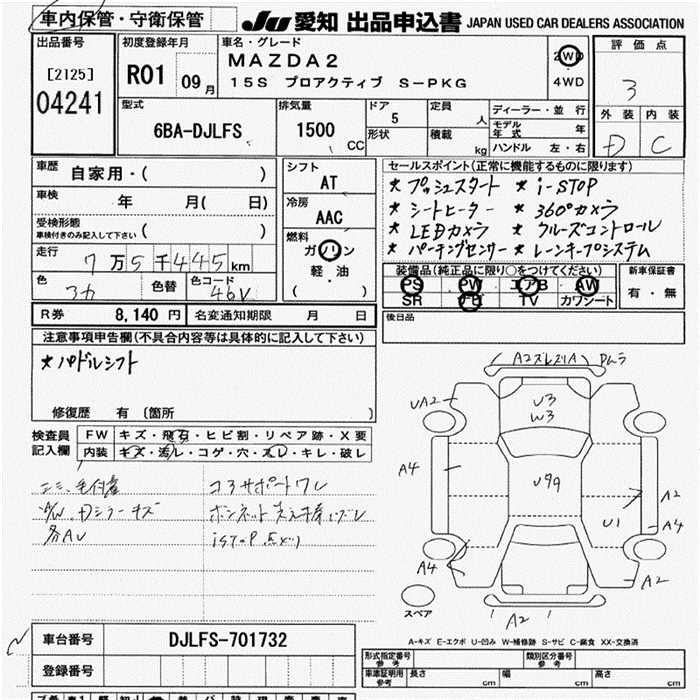 車内保管・守衛保管
JU 愛知 出品申込書 JAPAN USED CAR DEALERS ASSOCIATION
出品番号
[2125]
04241
初度登録年月
R01 09月
車名・グレード
MAZDA2
15S プロアクティブ S-PKG
2WD
4WD
評価点
3
外装 内装
D C
型式
6BA-DJLFS
排気量
1500 CC
ドア
5
形状
定員
人
積載
kg
ディーラー・並行
モデル年式 年
ハンドル 左・右
車歴
自家用・( )
車検
年 月( 日)
受検形態
車検付きのみ記入して下さい ( )
走行
7万5千445km
色
コカ
色替
色コード
46V
シフト
AT
冷房
AAC
燃料
ガソリン
軽・油
( )
セールスポイント(正常に機能するものに限ります)
★プッシュスタート ★i-STOP
★シートヒーター ★360°カメラ
★LEDカメラ ★クルーズコントロール
★パーキングセンサー ★レーンキープシステム
装備品(純正品に限り○をつけてください)
PS PW エアB AW
SR ナビ TV カワシート
新車保証書
有・無
R券 8,140円
名変通知期限 月 日
後日品
注意事項申告欄(不具合内容等は具体的に記入して下さい)
★パドルシフト
修復歴 有 (箇所 )
検査員記入欄
FW キズ・飛石・ヒビ割・リペア跡・X要
内装 キズ・汚レ・コゲ・穴・スレ・キレ・破レ
コアサポートワレ
iSTOP点メツ
A2ズレワレA
UA2
U3
W3
A4
U99
A2
U1
A4
A4
A2
A2
スペア
A-キズ E-エクボ U-凹み W-補修跡 S-サビ C-腐食 XX-交換済
車台番号
DJLFS-701732
登録番号
形式指定番号
参考
類別区分番号
参考
車車証明用
参考
長さ cm
幅 cm
高さ cm